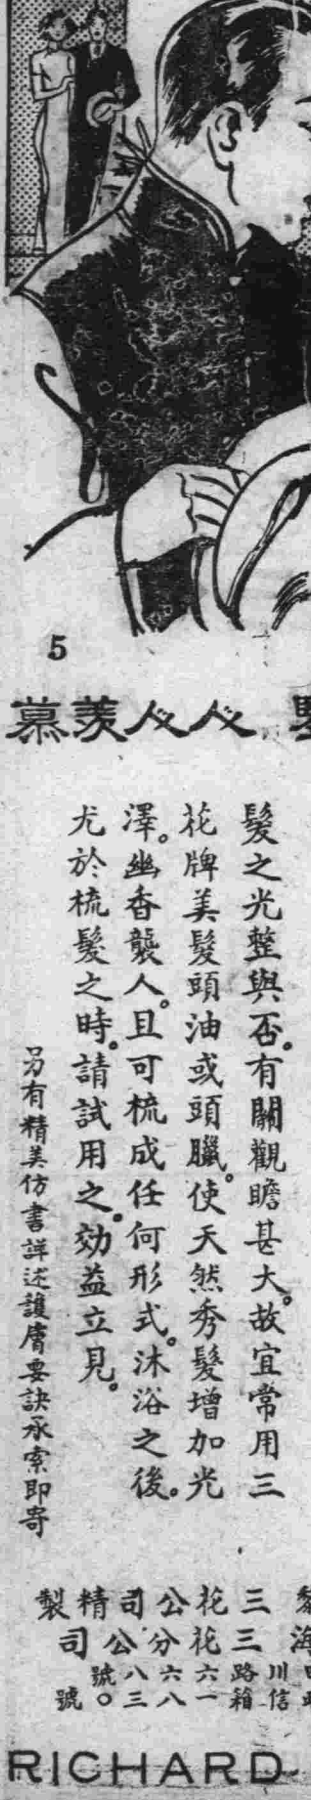 5
人人羨慕
髮之光整與否。有關觀瞻甚大。故宜常用三
花牌美髮頭油或頭臘。使天然秀髮增加光
澤。幽香襲人。且可梳成任何形式。沐浴之後。
尤於梳髮之時。請試用之。効益立見。
另有精美仿書詳述護膚要訣承索即寄
三花公司精製
三花分公司
川路六六八號
信箱一八三〇號
RICHARD